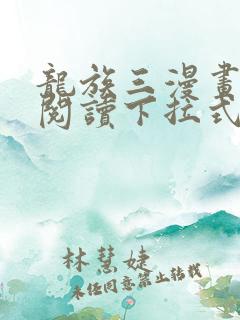 龍族三漫畫
閱讀下拉式
林慧婕
未任同意禁止轉載